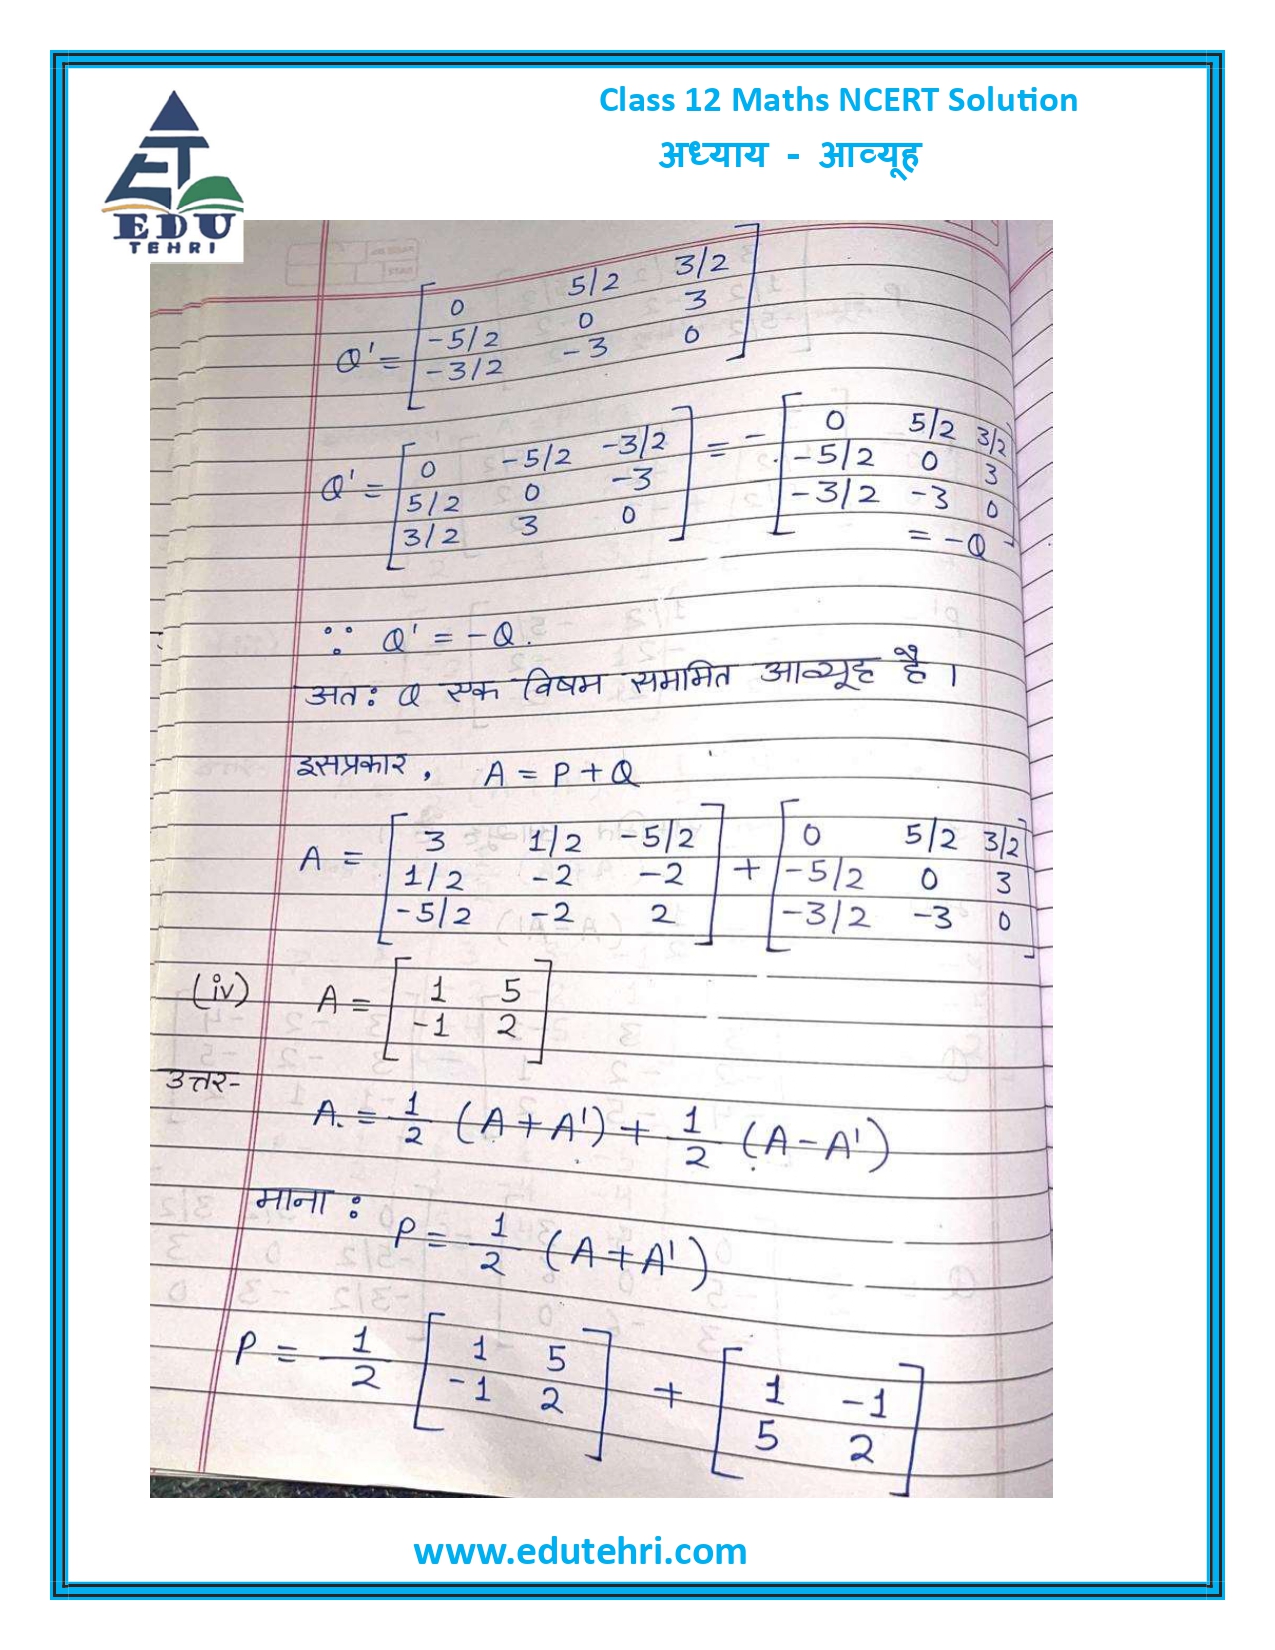 Class 12 Maths NCERT Solution
अध्याय - आव्यूह
ET
EDU
TEHRI
0 5/2 3/2
Q' = -5/2 0 3
-3/2 -3 0
Q' = 0 -5/2 -3/2 = - 0 5/2 3/2
5/2 0 -3 -5/2 0 3
3/2 3 0 -3/2 -3 0
= -Q
∵ Q' = -Q.
अतः Q एक विषम सममित आव्यूह है।
इसप्रकार, A = P + Q
A = 3 1/2 -5/2 + 0 5/2 3/2
1/2 -2 -2 -5/2 0 3
-5/2 -2 2 -3/2 -3 0
(iv) A = 1 5
-1 2
उत्तर-
A = 1/2 (A + A') + 1/2 (A - A')
माना :
P = 1/2 (A + A')
P = 1/2 [1 5 + [1 -1
-1 2] 5 2]
www.edutehri.com